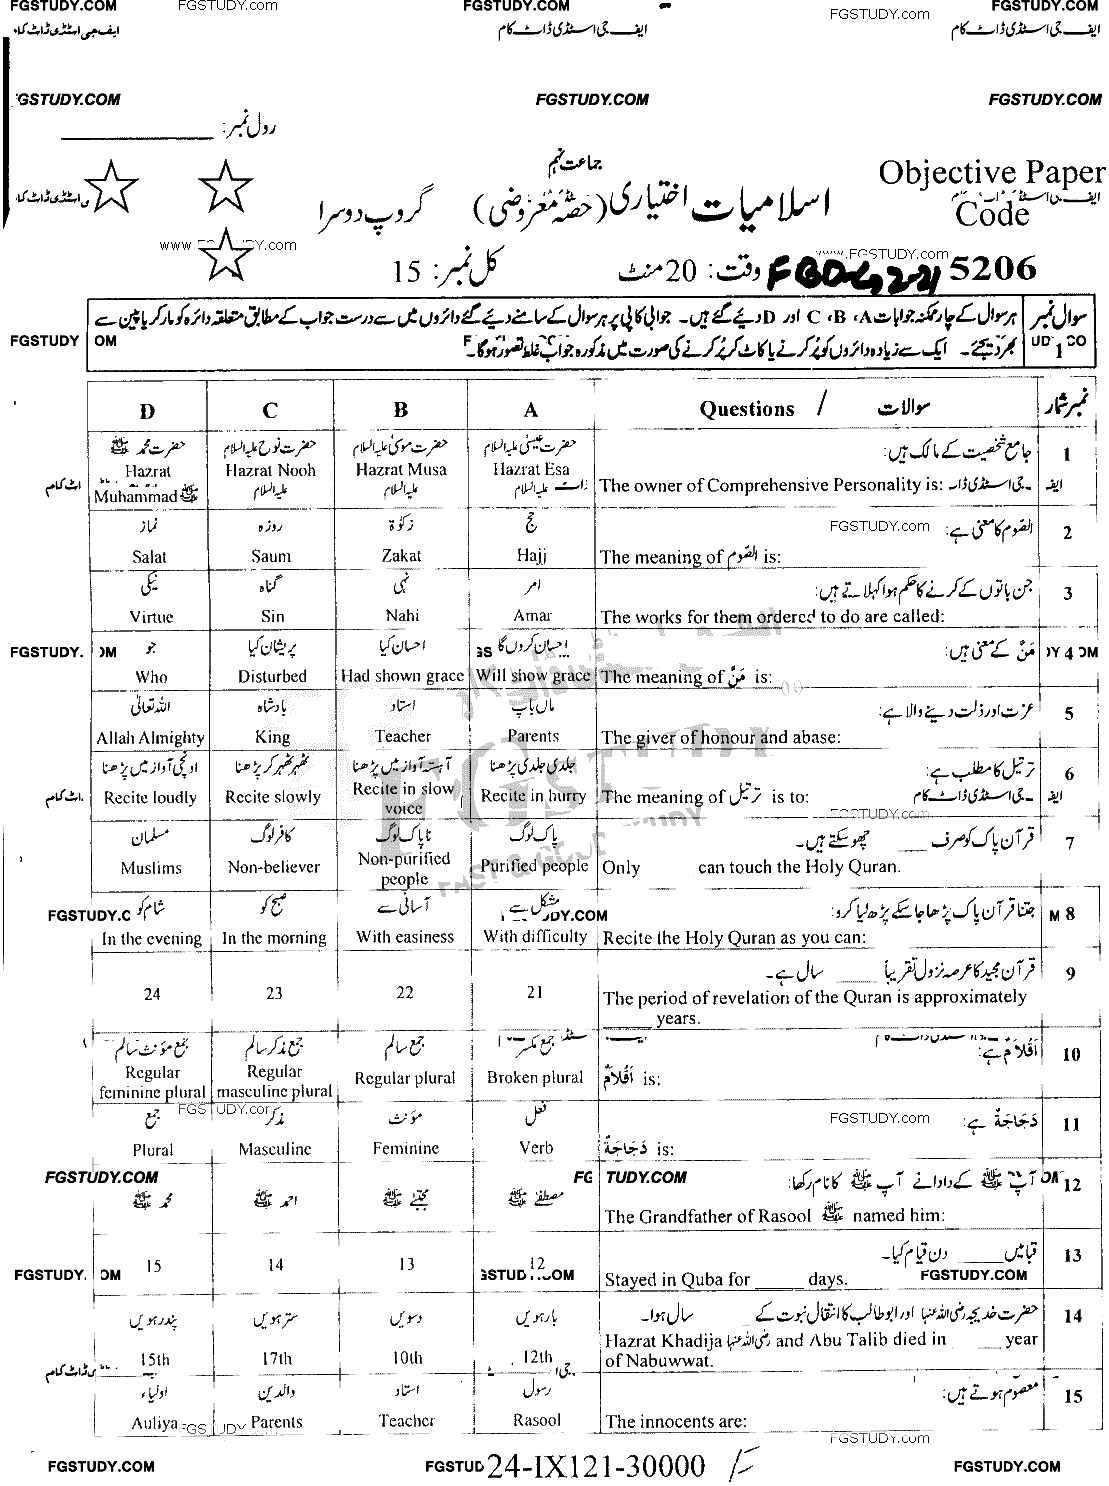 FGSTUDY.COM FGSTUDY.COM FGSTUDY.COM FGSTUDY.com FGSTUDY.COM
ایف جی اسٹڈی ڈاٹ کام ایف جی اسٹڈی ڈاٹ کام
GSTUDY.COM FGSTUDY.COM FGSTUDY.COM
رول نمبر: ____________
جماعت نہم
Objective Paper
Code
اسلامیات اختیاری (حصّہ معروضی) گروپ دوسرا
www.FGSTUDY.com www.FGSTUDY.com
5206 وقت: 20 منٹ کل نمبر: 15
سوال نمبر 1 ہر سوال کے چار ممکنہ جوابات A، B، C اور D دیے گئے ہیں۔ جوابی کاپی پر ہر سوال کے سامنے دیے گئے دائروں میں سے درست جواب کے مطابق متعلقہ دائرہ کو مارکر یا پین سے
بھر دیجئے۔ ایک سے زیادہ دائروں کو پُر کرنے یا کاٹ کر پُر کرنے کی صورت میں مذکورہ جواب غلط تصور ہوگا۔
نمبر شمار سوالات / Questions A B C D
1 جامع شخصیت کے مالک ہیں: حضرت عیسیٰ علیہ السلام حضرت موسیٰ علیہ السلام حضرت نوح علیہ السلام حضرت محمد ﷺ
The owner of Comprehensive Personality is: Hazrat Esa علیہ السلام Hazrat Musa علیہ السلام Hazrat Nooh علیہ السلام Hazrat Muhammad ﷺ
2 الصّوم کا معنی ہے: حج زکوٰۃ روزہ نماز
The meaning of الصّوم is: Hajj Zakat Saum Salat
3 جن باتوں کے کرنے کا حکم ہوا کہلاتے ہیں: امر نہی گناہ نیکی
The works for them ordered to do are called: Amar Nahi Sin Virtue
4 مَنَّ کے معنی ہیں: احسان کروں گا احسان کیا پریشان کیا جو
The meaning of مَنَّ is: Will show grace Had shown grace Disturbed Who
5 عزت اور ذلت دینے والا ہے: ماں باپ استاد بادشاہ اللہ تعالیٰ
The giver of honour and abase: Parents Teacher King Allah Almighty
6 ترتیل کا مطلب ہے: جلدی جلدی پڑھنا آہستہ آواز میں پڑھنا ٹھہر ٹھہر کر پڑھنا اونچی آواز میں پڑھنا
The meaning of ترتیل is to: Recite in hurry Recite in slow voice Recite slowly Recite loudly
7 قرآن پاک کو صرف ____ چھو سکتے ہیں۔ پاک لوگ ناپاک لوگ کافر لوگ مسلمان
Only ____ can touch the Holy Quran. Purified people Non-purified people Non-believer Muslims
8 جتنا قرآن پاک پڑھا جا سکے پڑھ لیا کرو: مشکل سے آسانی سے صبح کو شام کو
Recite the Holy Quran as you can: With difficulty With easiness In the morning In the evening
9 قرآن مجید کا عرصہ نزول تقریباً ____ سال ہے۔ 21 22 23 24
The period of revelation of the Quran is approximately
____ years.
10 اَقْلَامٌ ہے: جمع مکسر جمع سالم جمع مذکر سالم جمع مؤنث سالم
اَقْلَامٌ is: Broken plural Regular plural Regular masculine plural Regular feminine plural
11 دَجَاجَةٌ ہے: فعل مؤنث مذکر جمع
دَجَاجَةٌ is: Verb Feminine Masculine Plural
12 آپ ﷺ کے دادا نے آپ ﷺ کا نام رکھا: مصطفےٰ ﷺ مجتبےٰ ﷺ احمد ﷺ محمد ﷺ
The Grandfather of Rasool ﷺ named him:
13 قبا میں ____ دن قیام کیا۔ 12 13 14 15
Stayed in Quba for ____ days.
14 حضرت خدیجہ رضی اللہ عنہا اور ابو طالب کا انتقال نبوت کے ____ سال ہوا۔ بارہویں دسویں سترہویں پندرہویں
Hazrat Khadija رضی اللہ عنہا and Abu Talib died in ____ year
of Nabuwwat. 12th 10th 17th 15th
15 معصوم ہوتے ہیں: رسول استاد والدین اولیاء
The innocents are: Rasool Teacher Parents Auliya
FGSTUDY.com
FGSTUDY.COM 24-IX121-30000 FGSTUDY.COM